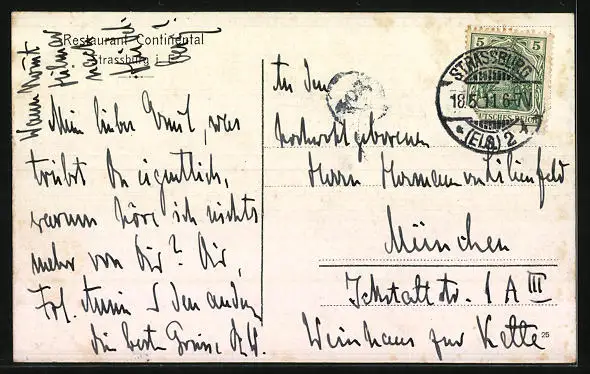 Restaurant Continental
Strassburg i. E.
Wann kommt
Mein lieber Armit, was
treibst Du eigentlich,
warum höre ich nichts
mehr von Dir? Dir,
Frl. Annie & den andern
die besten Grüsse
An den
hochwohlgeborenen
Herrn Hermann von Lilienfeld
München
Ickstattstr. 1 A III
Weinhaus zur Kette
25
5 5
DEUTSCHES REICH
STRASSBURG
18.5.11.6-7N
* (ELS.) 2 *